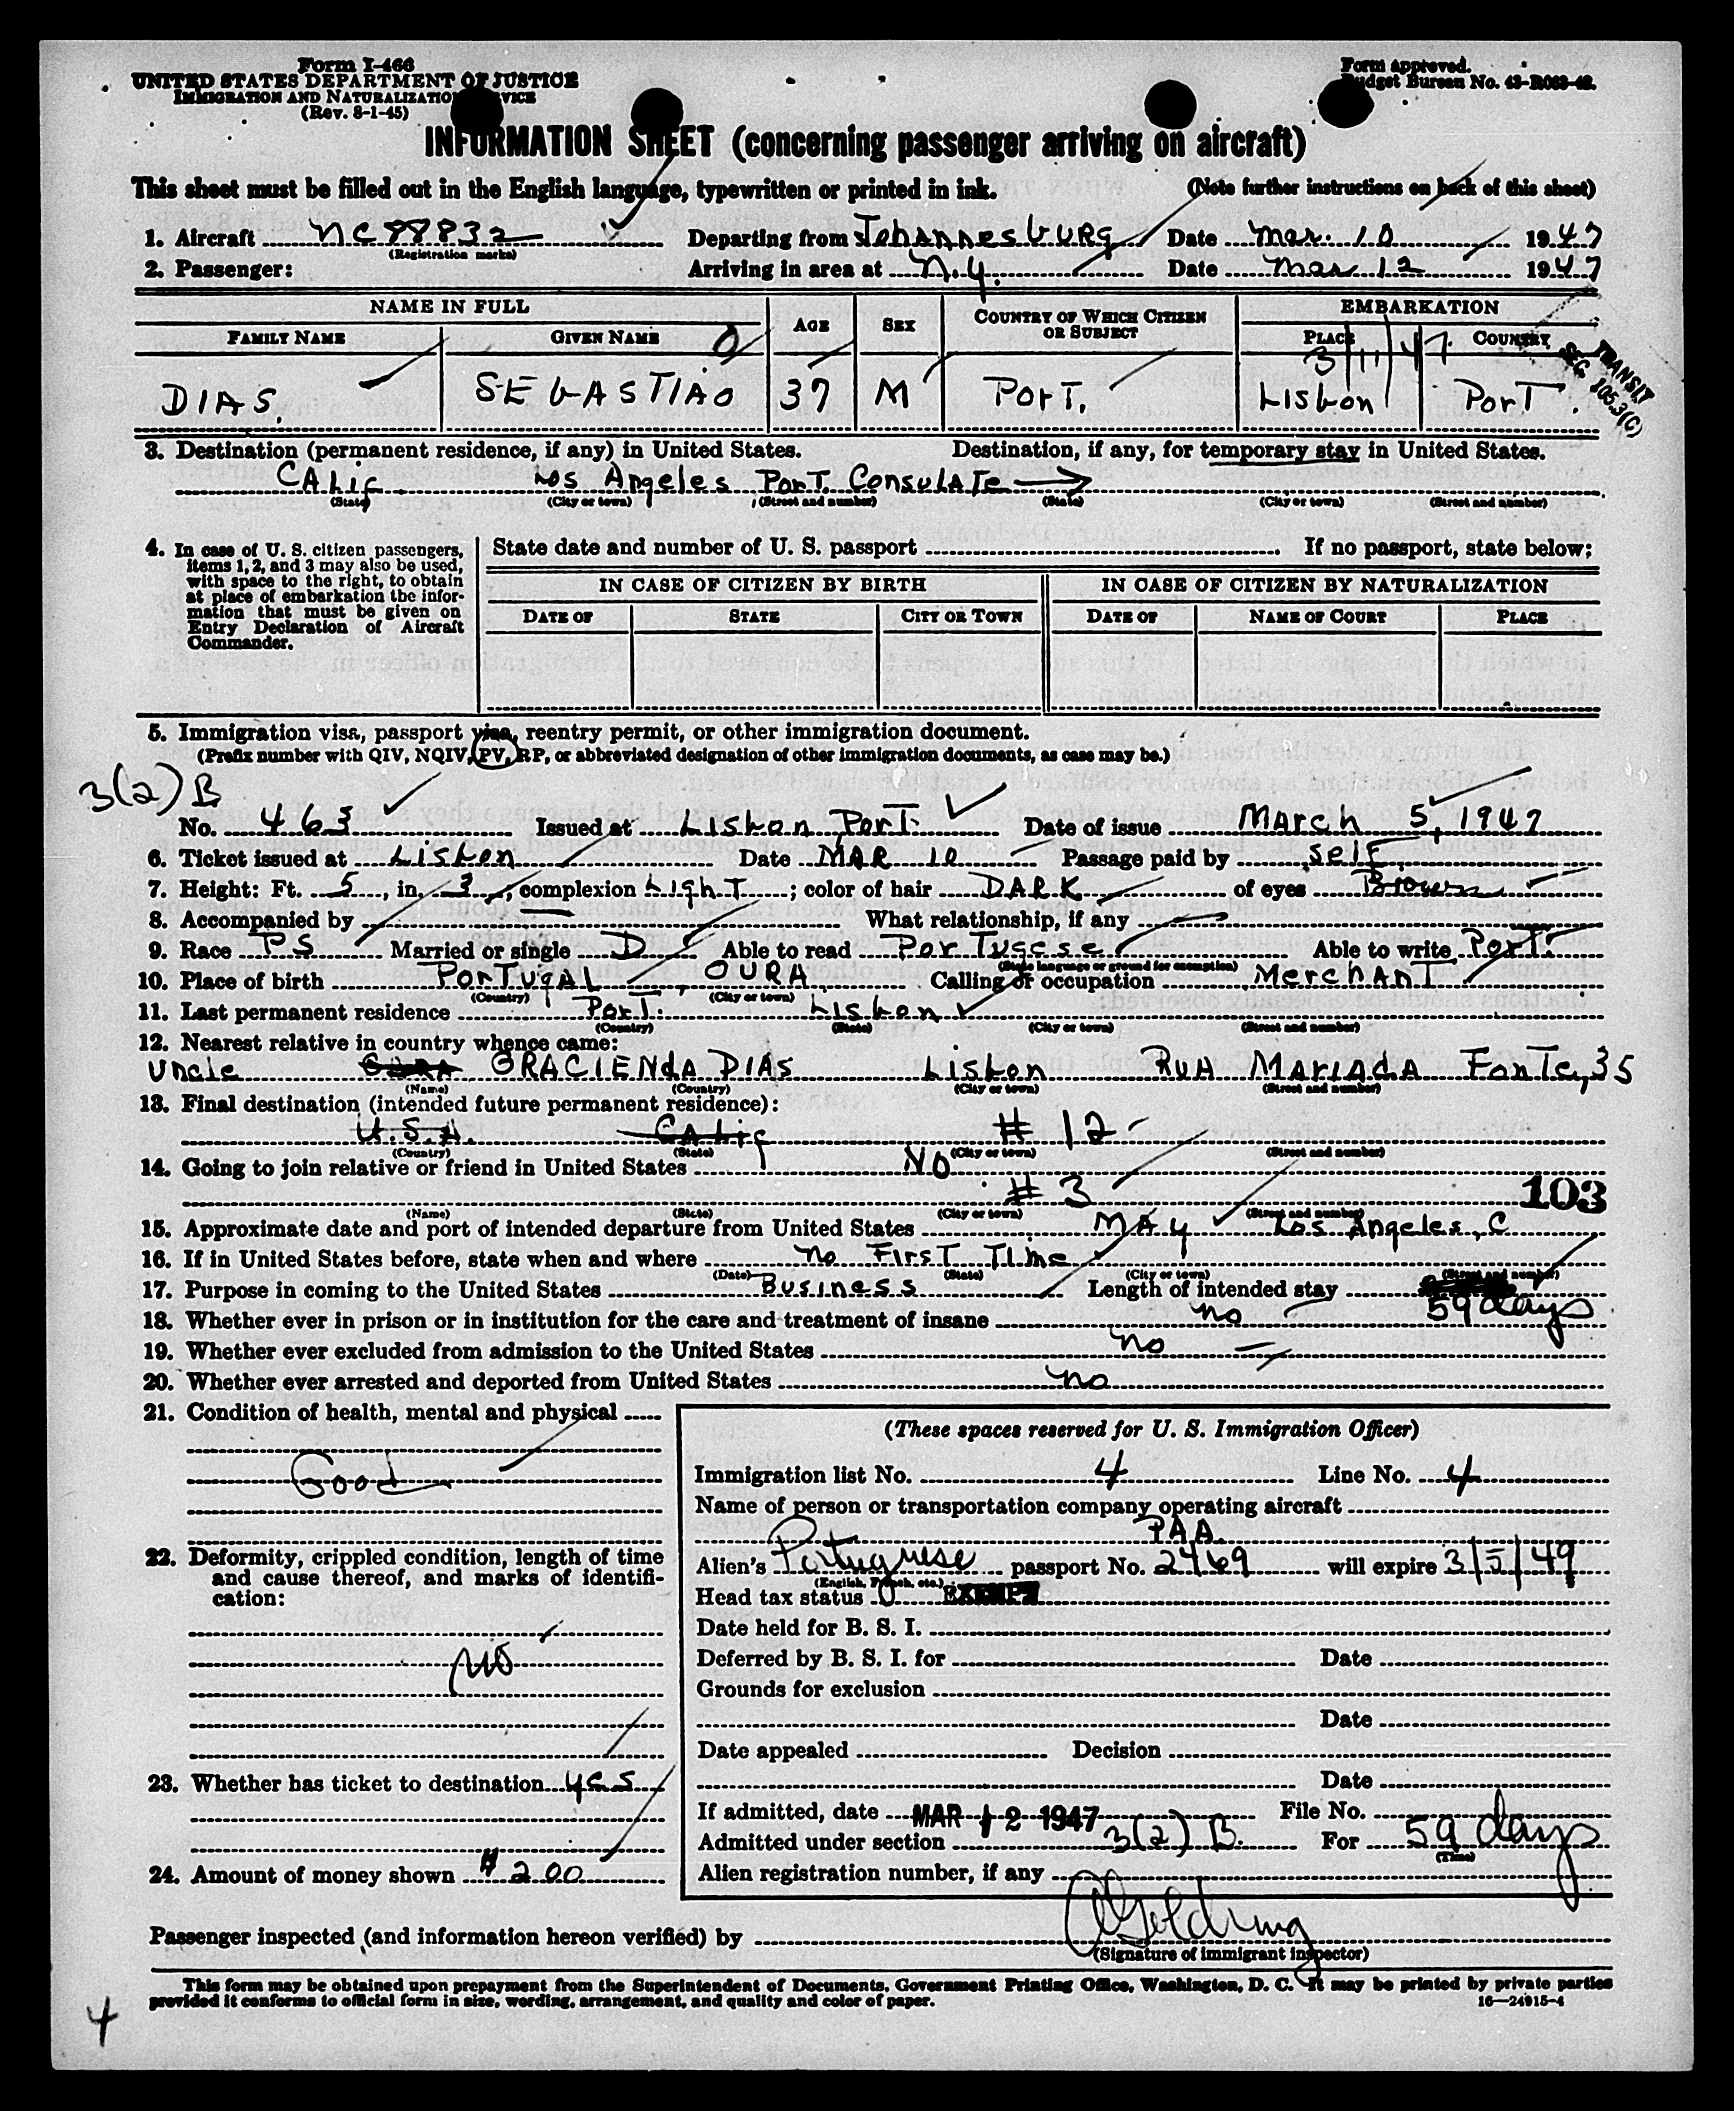 Form I-466
UNITED STATES DEPARTMENT OF JUSTICE
IMMIGRATION AND NATURALIZATION SERVICE
(Rev. 8-1-45)
Form approved.
Budget Bureau No. 43-R063-42.
INFORMATION SHEET (concerning passenger arriving on aircraft)
This sheet must be filled out in the English language, typewritten or printed in ink. (Note further instructions on back of this sheet)
1. Aircraft NC 88832 Departing from Johannesburg Date Mar. 10 1947
(Registration marks)
2. Passenger: Arriving in area at N.Y. Date Mar 12 1947
NAME IN FULL AGE SEX COUNTRY OF WHICH CITIZEN OR SUBJECT EMBARKATION
FAMILY NAME GIVEN NAME PLACE COUNTRY
3/11/47
TRANSIT
SEC. 105.3(C)
DIAS. SEbASTIÃO 37 M PorT. Lisbon PorT.
3. Destination (permanent residence, if any) in United States. Destination, if any, for temporary stay in United States.
CALif Los Angeles PorT. Consulate →
(State) (City or town) (Street and number) (State) (City or town) (Street and number)
4. In case of U. S. citizen passengers, items 1, 2, and 3 may also be used, with space to the right, to obtain at place of embarkation the information that must be given on Entry Declaration of Aircraft Commander.
State date and number of U. S. passport If no passport, state below:
IN CASE OF CITIZEN BY BIRTH IN CASE OF CITIZEN BY NATURALIZATION
DATE OF STATE CITY OR TOWN DATE OF NAME OF COURT PLACE
5. Immigration visa, passport visa, reentry permit, or other immigration document.
(Prefix number with QIV, NQIV, PV, RP, or abbreviated designation of other immigration documents, as case may be.)
3(2) B
No. 463 Issued at Lisbon PorT. Date of issue March 5, 1947
6. Ticket issued at Lisbon Date MAR 10 Passage paid by self
7. Height: Ft. 5, in. 3; complexion LighT; color of hair DARK of eyes Brown
8. Accompanied by — What relationship, if any —
9. Race PS Married or single D Able to read PorTugese Able to write PorT.
(State language or ground for exemption)
10. Place of birth PorTugAL, OURA Calling or occupation MerchAnT
(Country) (City or town)
11. Last permanent residence PorT. Lisbon
(Country) (State) (City or town) (Street and number)
12. Nearest relative in country whence came:
Uncle GRACIENdA DIAS Lisbon RUA MARIADA FonTe, 35
(Name) (Country) (City or town) (Street and number)
13. Final destination (intended future permanent residence):
U.S.A. CALif # 12
(Country) (State) (City or town) (Street and number)
14. Going to join relative or friend in United States NO
# 3 103
(Name) (State) (City or town) (Street and number)
15. Approximate date and port of intended departure from United States MAY Los Angeles, C
16. If in United States before, state when and where no FirsT Time
(Date) (State) (City or town) (Street and number)
17. Purpose in coming to the United States Business Length of intended stay 59 days
18. Whether ever in prison or in institution for the care and treatment of insane no
19. Whether ever excluded from admission to the United States no
20. Whether ever arrested and deported from United States no
21. Condition of health, mental and physical
Good
22. Deformity, crippled condition, length of time and cause thereof, and marks of identification:
no
23. Whether has ticket to destination yes
24. Amount of money shown $ 200
(These spaces reserved for U. S. Immigration Officer)
Immigration list No. 4 Line No. 4
Name of person or transportation company operating aircraft
PAA.
Alien's Portuguese passport No. 2469 will expire 3/5/49
(English, French, etc.)
Head tax status EXEMPT
Date held for B. S. I.
Deferred by B. S. I. for Date
Grounds for exclusion
Date
Date appealed Decision
Date
If admitted, date MAR 12 1947 File No.
Admitted under section 3(2) B. For 59 days
(Time)
Alien registration number, if any
Passenger inspected (and information hereon verified) by
(Signature of immigrant inspector)
This form may be obtained upon prepayment from the Superintendent of Documents, Government Printing Office, Washington, D. C. It may be printed by private parties
provided it conforms to official form in size, wording, arrangement, and quality and color of paper. 16—24915-4
4